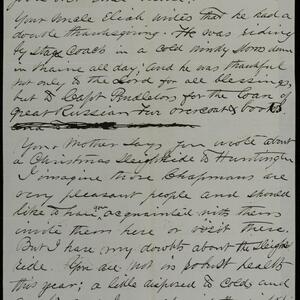 Your Uncle Eliah writes that he had a
double thanksgiving. He was riding
by stage coach in a cold windy storm down
in Maine all day; and he was thankful
not only to the Lord for all blessings,
but to Capt Pendletons for the loan of
great Russian Fur overcoat & boots
Your Mother says you wrote about
a Christmas Sleigh ride to Huntington
I imagine those Chapmans are
very pleasant people and should
like to have you acquainted with them
invite them here or visit there.
But I have my doubts about the Sleigh
ride. You are not in robust health
this year; a little disposed to cold and